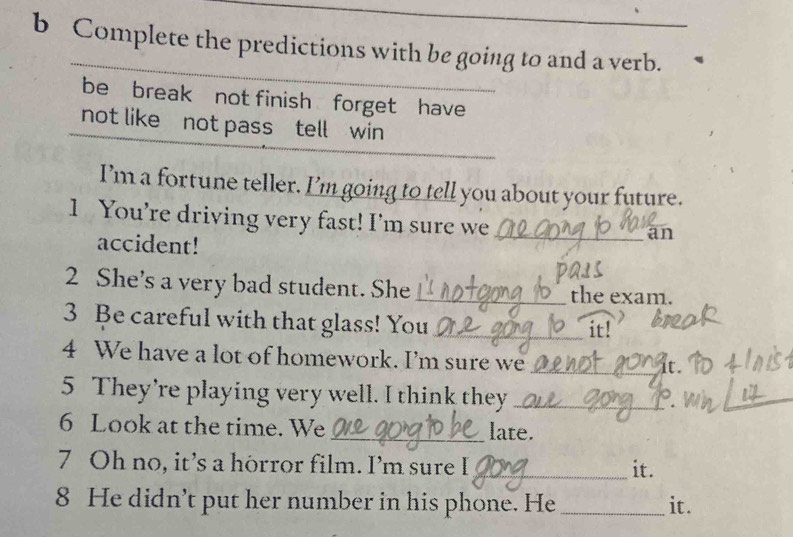 b Complete the predictions with be going to and a verb.
be break not finish forget have
not like not pass tell win
I'm a fortune teller. I'm going to tell you about your future.
1 You're driving very fast! I'm sure we are gong to have an
accident!
pass
2 She's a very bad student. She is not gong to the exam.
3 Be careful with that glass! You are gong to it! break
4 We have a lot of homework. I'm sure we are not gong it. to finish
5 They're playing very well. I think they are gong to. win it
6 Look at the time. We are gong to be late.
7 Oh no, it's a horror film. I'm sure I gong it.
8 He didn't put her number in his phone. He it.